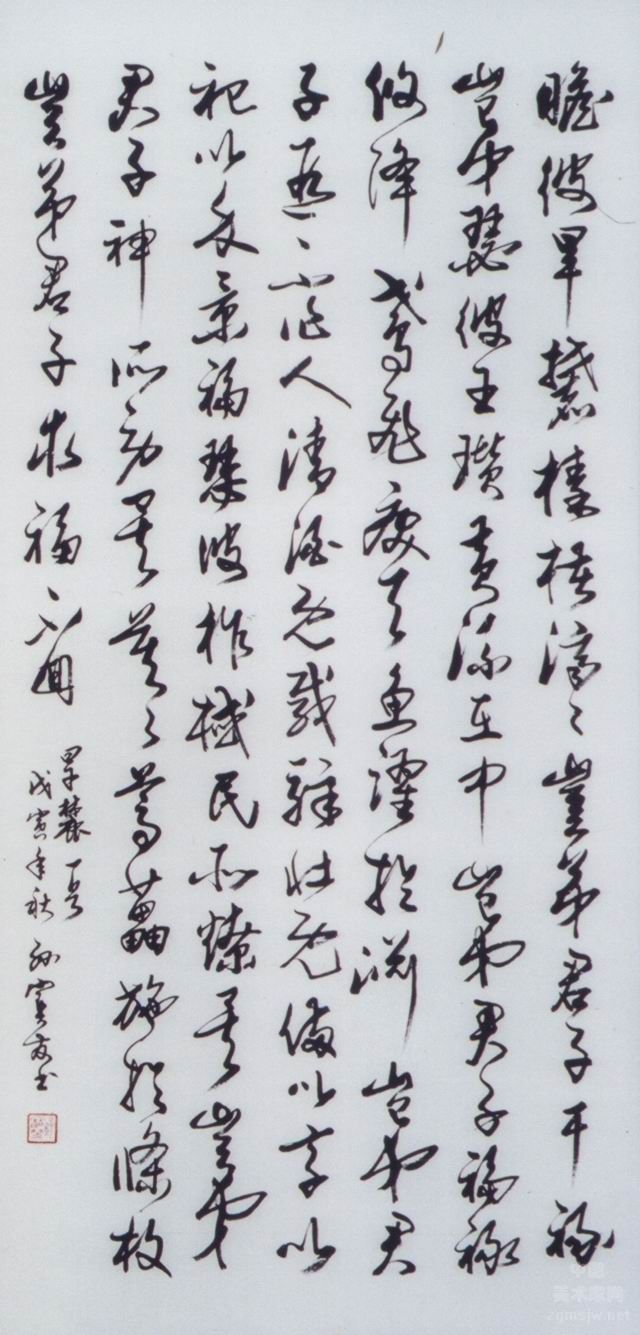 瞻彼旱麓榛楛濟〻豈弟君子干祿
豈弟瑟彼玉瓚黃流在中豈弟君子福祿
攸降鳶飛戾天魚躍於淵豈弟君
子遐不作人清酒既載騂牡既備以享以
祀以介景福瑟彼柞棫民所燎矣豈弟
君子神所勞矣莫〻葛藟施於條枚
豈弟君子求福不回
旱麓
戊寅年秋 孙書
中國
美术家网
zgmsjw.net